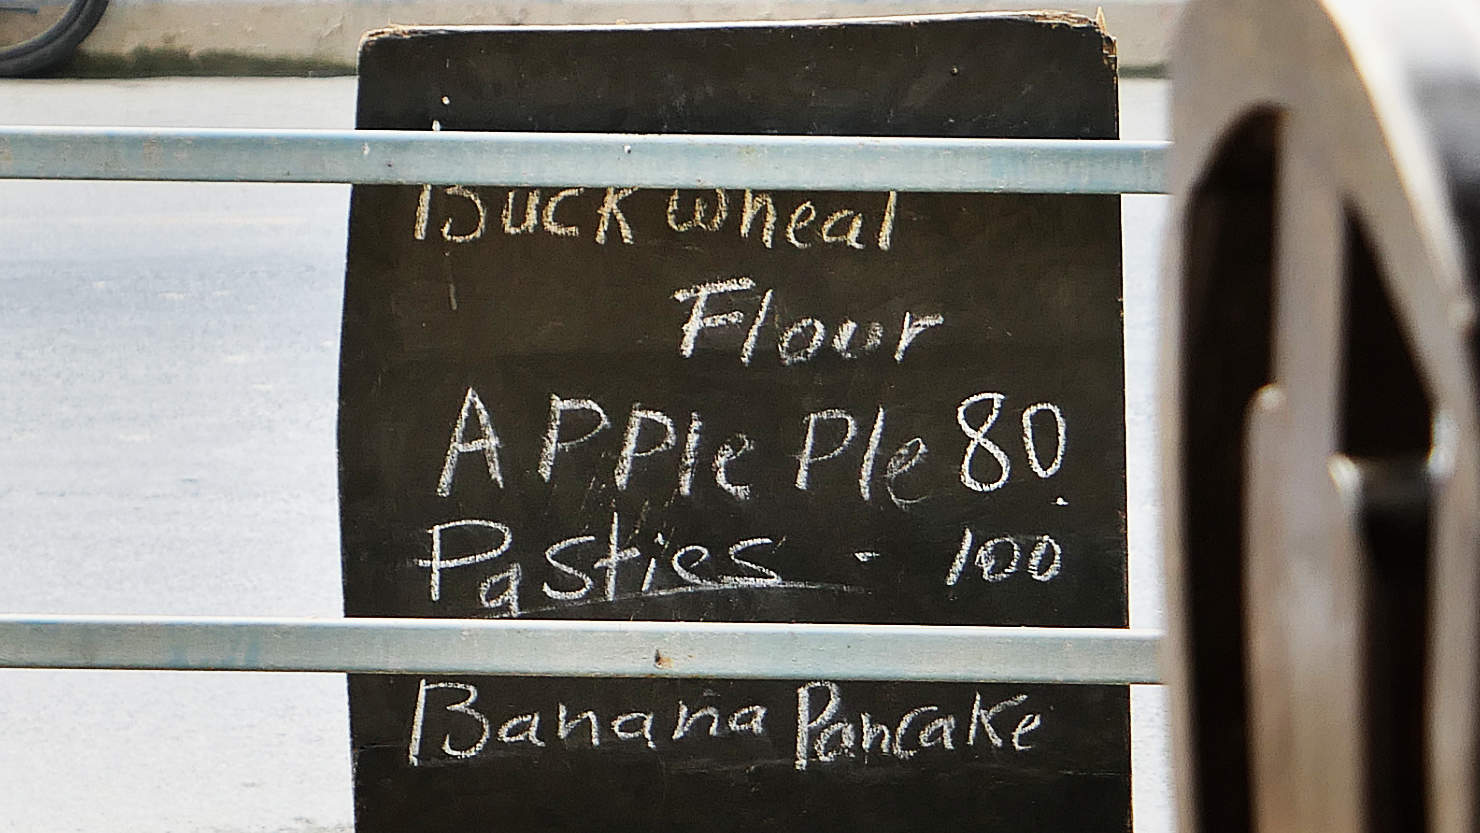 Buck wheat
Flour
APPle Pie 80
Pasties - 100
Banana Pancake